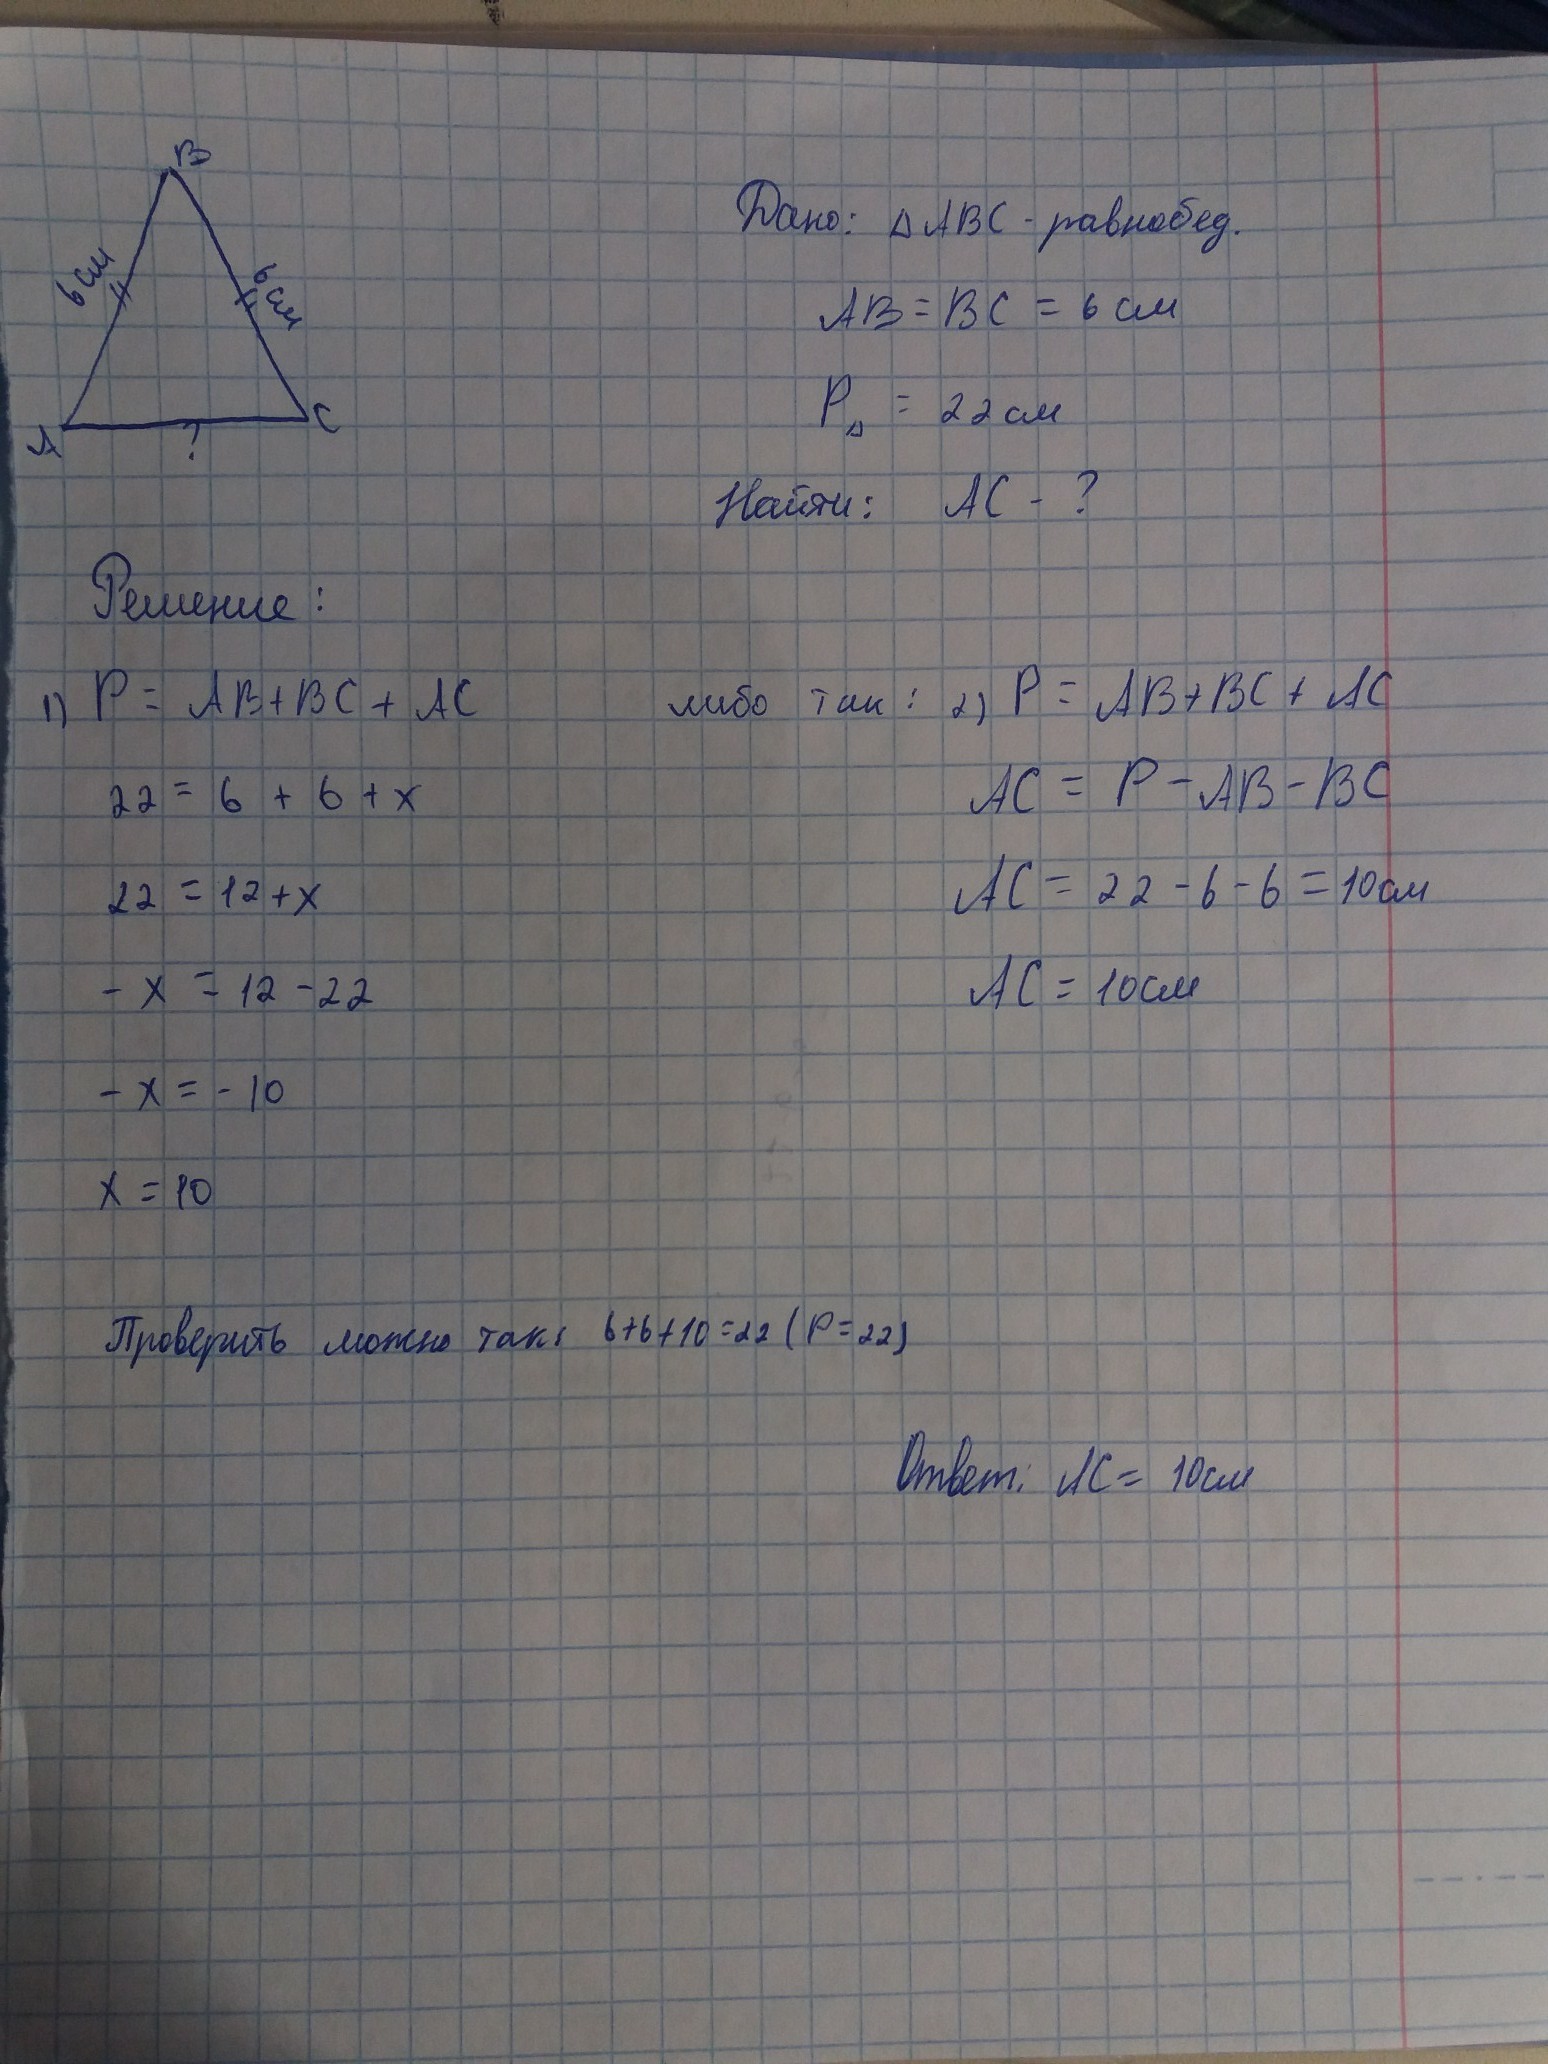 B
6 см
6 см
A
?
C
Дано: △ABC - равнобед.
AB = BC = 6 см
P△ = 22 см
Найти: AC - ?
Решение:
1) P = AB + BC + AC
22 = 6 + 6 + x
22 = 12 + x
- x = 12 - 22
- x = - 10
x = 10
либо так: 2) P = AB + BC + AC
AC = P - AB - BC
AC = 22 - 6 - 6 = 10см
AC = 10см
Проверить можно так: 6+6+10=22 (P=22)
Ответ: AC = 10см